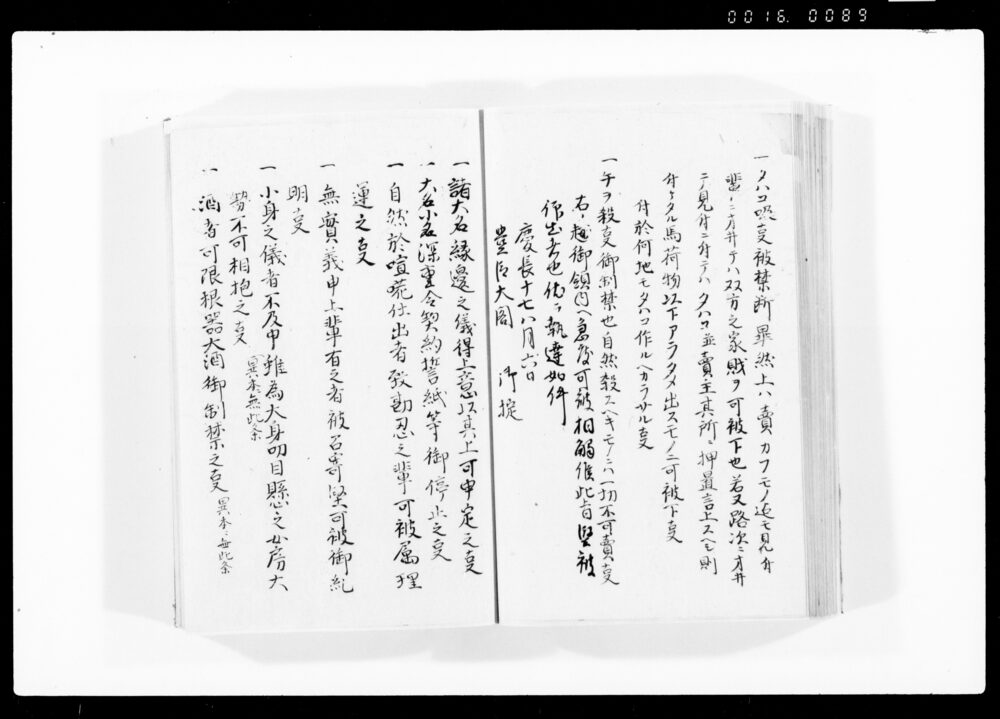 0016. 0089
一タハコ吸叓被禁断畢然上ハ賣カフモノ迄モ見付
輩ニ方ヰテハ双方之家賊ヲ可被下也若又路次ニ方ヰ
テ見付ニ付テハタハコ並賣主其所ニ押置言上スヘシ則
付タル馬荷物以下アラタメ出スモノニ可被下叓
付於何地モタハコ作ルヘカラサル叓
一牛ヲ殺叓御制禁也自然殺スヘキモノニハ一切不可賣叓
右ノ趣御領内ヘ急度可被相觸候此旨堅被
仰出者也仍テ執達如件
慶長十七八月六日
豊臣大閤 御掟
一諸大名縁邊之儀得上意以其上可申定之叓
一大名小名深重令契約誓紙等御停止之叓
一自然於喧嘩仕出者致勘忍之輩可被属理
運之叓
一無實義申上輩有之者被召寄堅可被御糺
明叓
一小身之儀者不及申雖為大身叨目懸之女房大
勢不可相抱之叓 (異本ニ無此条
一酒者可限根器大酒御制禁之叓 異本ニ無此条